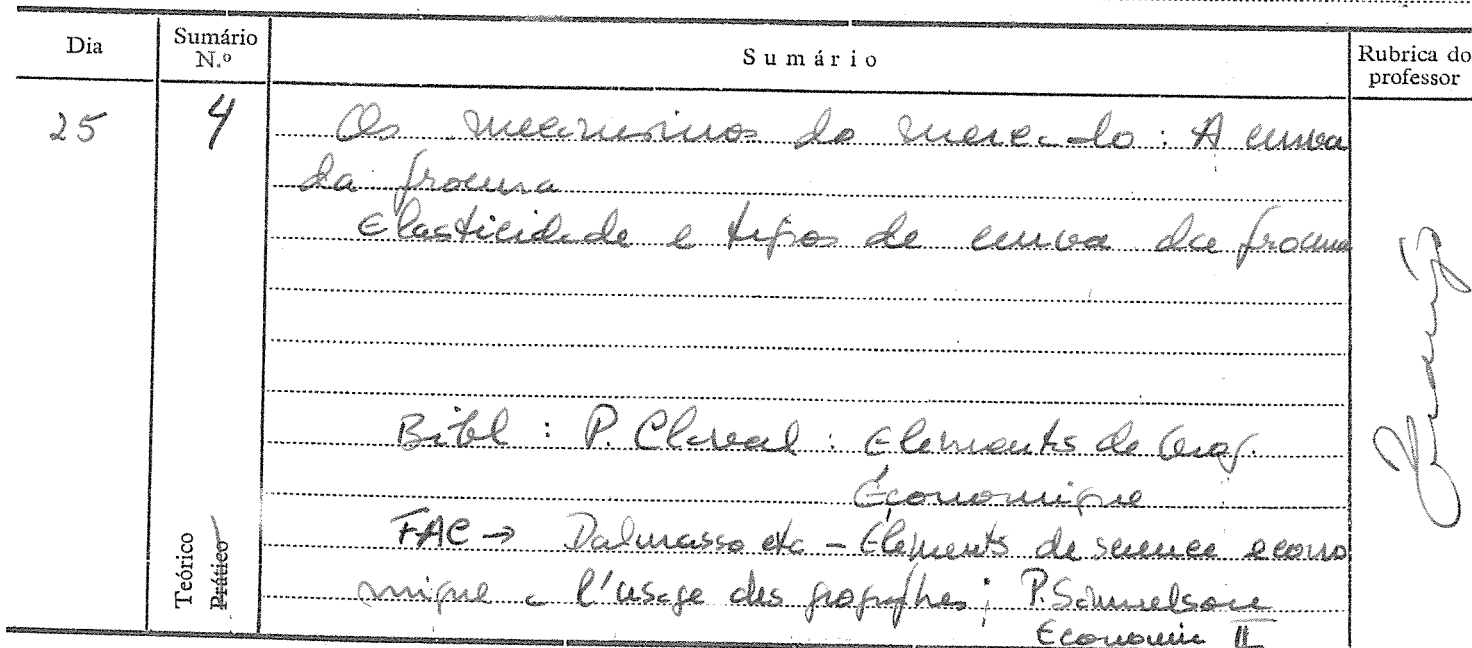 Dia Sumário N.º Sumário Rubrica do professor
25 4 Os mecanismos do mercado : A curva
da procura
Elasticidade e tipos de curva da procura
Bibl : P. Claval : Elements de Geog.
Économique
FAC → Dalmasso etc - Elements de science econo
mique a l'usage des geographes ; P. Samuelson
Economie II
Teórico
Prático